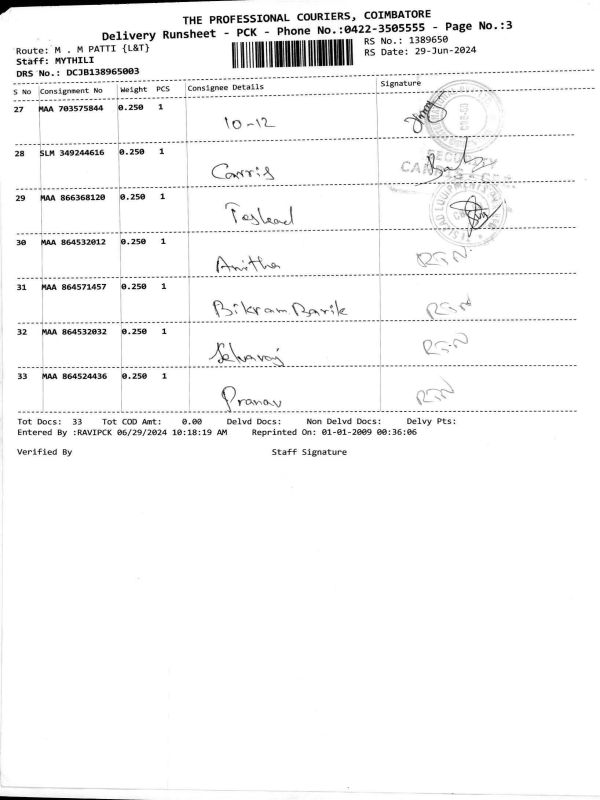 THE PROFESSIONAL COURIERS, COIMBATORE
Delivery Runsheet - PCK - Phone No.:0422-3505555 - Page No.:3
Route: M . M PATTI {L&T} RS No.: 1389650
Staff: MYTHILI RS Date: 29-Jun-2024
DRS No.: DCJB138965003
S No Consignment No Weight PCS Consignee Details Signature
27 MAA 703575844 0.250 1 10-12
28 SLM 349244616 0.250 1 Carris
29 MAA 866368120 0.250 1 Teslead
30 MAA 864532012 0.250 1 Anitha RTN
31 MAA 864571457 0.250 1 Bikram Barik RTN
32 MAA 864532032 0.250 1 Selvaraj RTN
33 MAA 864524436 0.250 1 Pranav RTN
Tot Docs: 33 Tot COD Amt: 0.00 Delvd Docs: Non Delvd Docs: Delvy Pts:
Entered By :RAVIPCK 06/29/2024 10:18:19 AM Reprinted On: 01-01-2009 00:36:06
Verified By Staff Signature